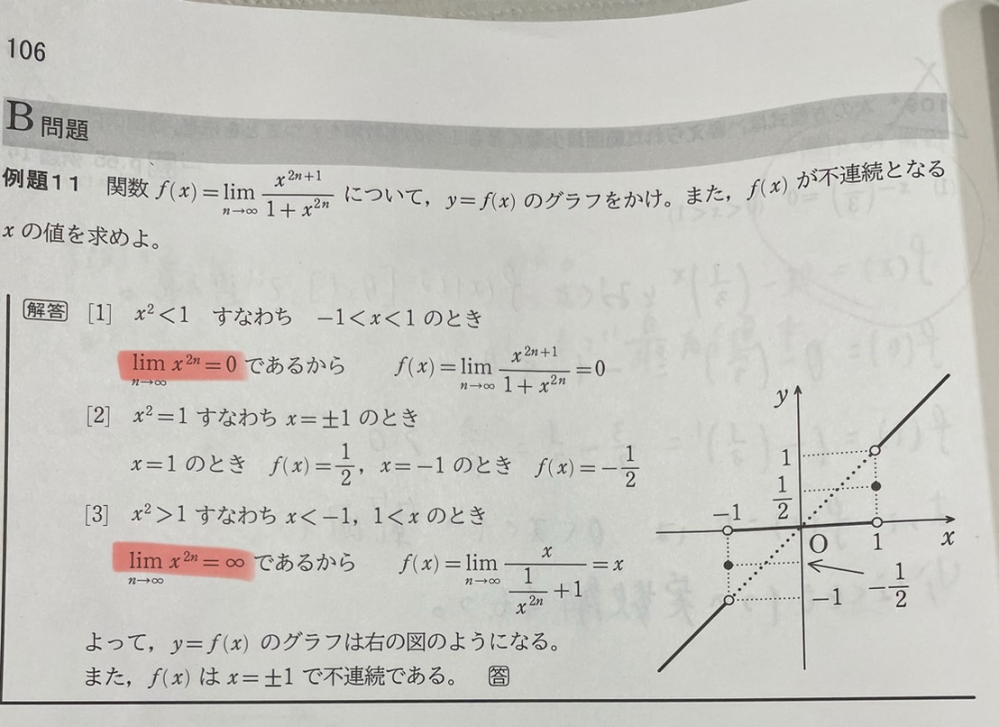 106
B 問題
例題11 関数 f(x)=lim_{n→∞} x^{2n+1}/(1+x^{2n}) について，y=f(x) のグラフをかけ。また，f(x) が不連続となる
x の値を求めよ。
解答 [1] x²<1 すなわち −1<x<1 のとき
lim_{n→∞} x^{2n}=0 であるから f(x)=lim_{n→∞} x^{2n+1}/(1+x^{2n})=0
[2] x²=1 すなわち x=±1 のとき
x=1 のとき f(x)=1/2，x=−1 のとき f(x)=−1/2
[3] x²>1 すなわち x<−1，1<x のとき
lim_{n→∞} x^{2n}=∞ であるから f(x)=lim_{n→∞} x/(1/x^{2n}+1)=x
よって，y=f(x) のグラフは右の図のようになる。
また，f(x) は x=±1 で不連続である。 答
y
1
1/2
−1
O
1
x
−1/2
−1